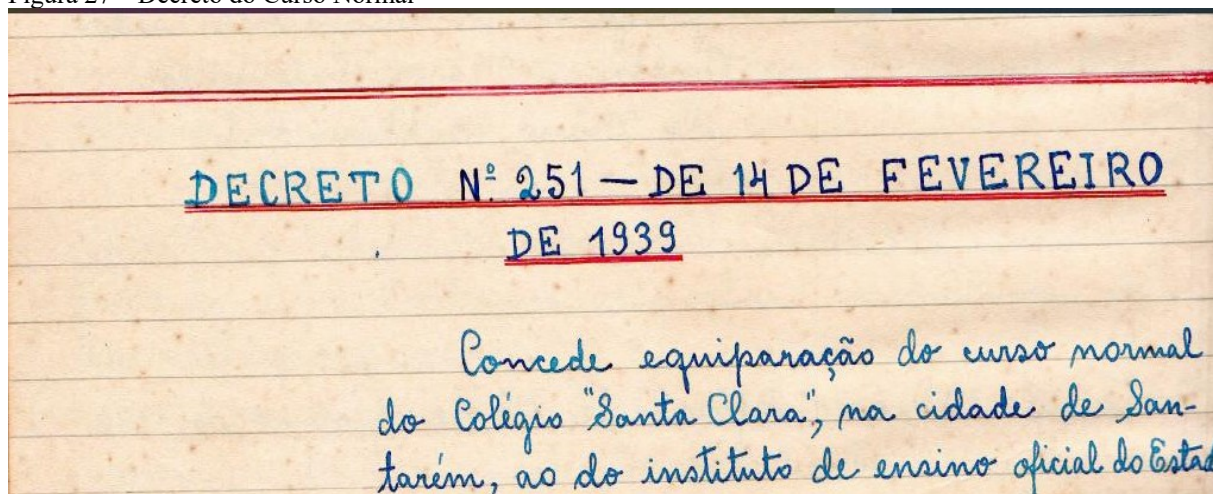 Figura 27 – Decreto do Curso Normal
DECRETO Nº 251 — DE 14 DE FEVEREIRO
DE 1939
Concede equiparação do curso normal
do Colégio "Santa Clara", na cidade de San-
tarém, ao do instituto de ensino oficial do Estad